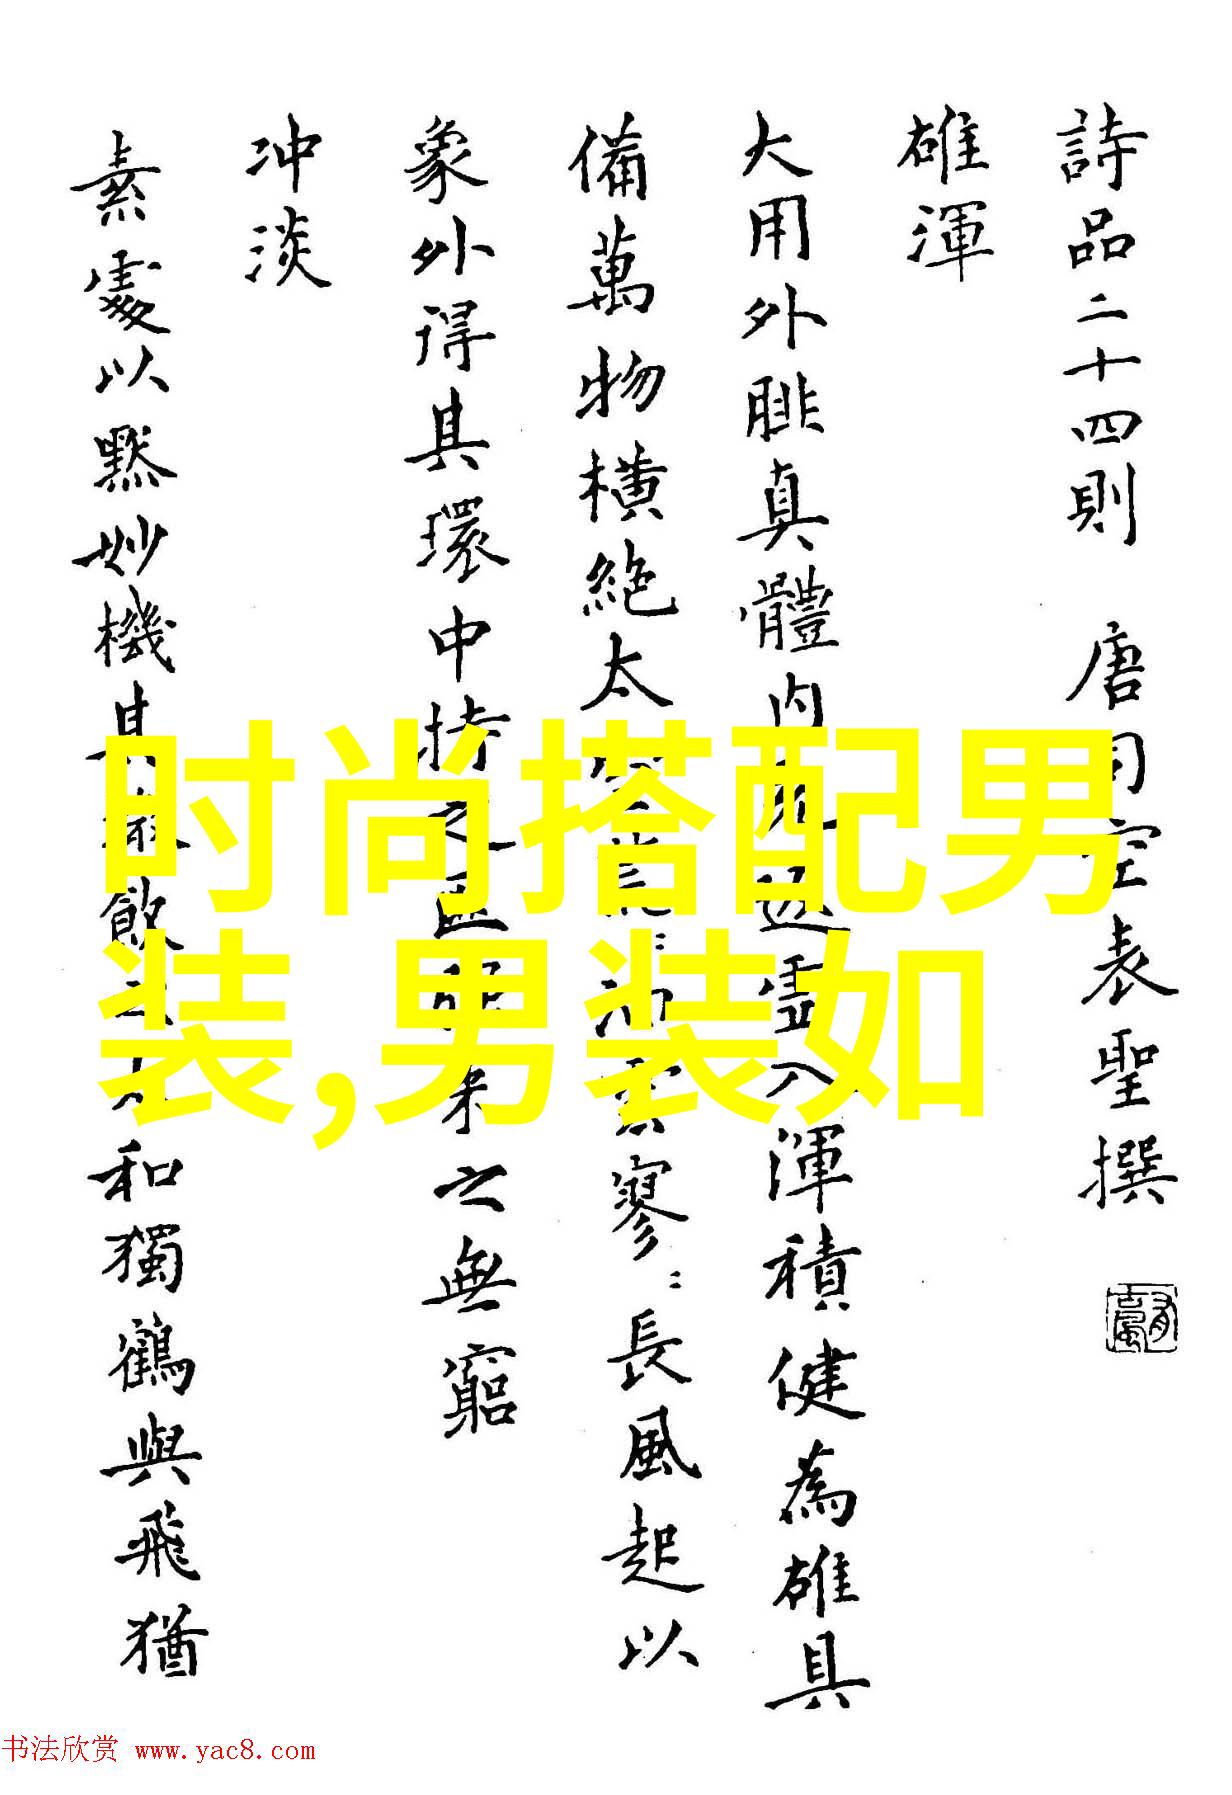 詩品二十四則 唐司空表聖撰
雄渾
大用外腓真體内返虛入渾積健為雄具
備萬物橫絶太空荒〻油雲寥〻長風起以
象外得其環中持之匪強来之無窮
冲淡
素處以默妙機其微飲之太和獨鶴與飛猶
时尚搭配男
装,男装如
书法欣赏 www.yac8.com